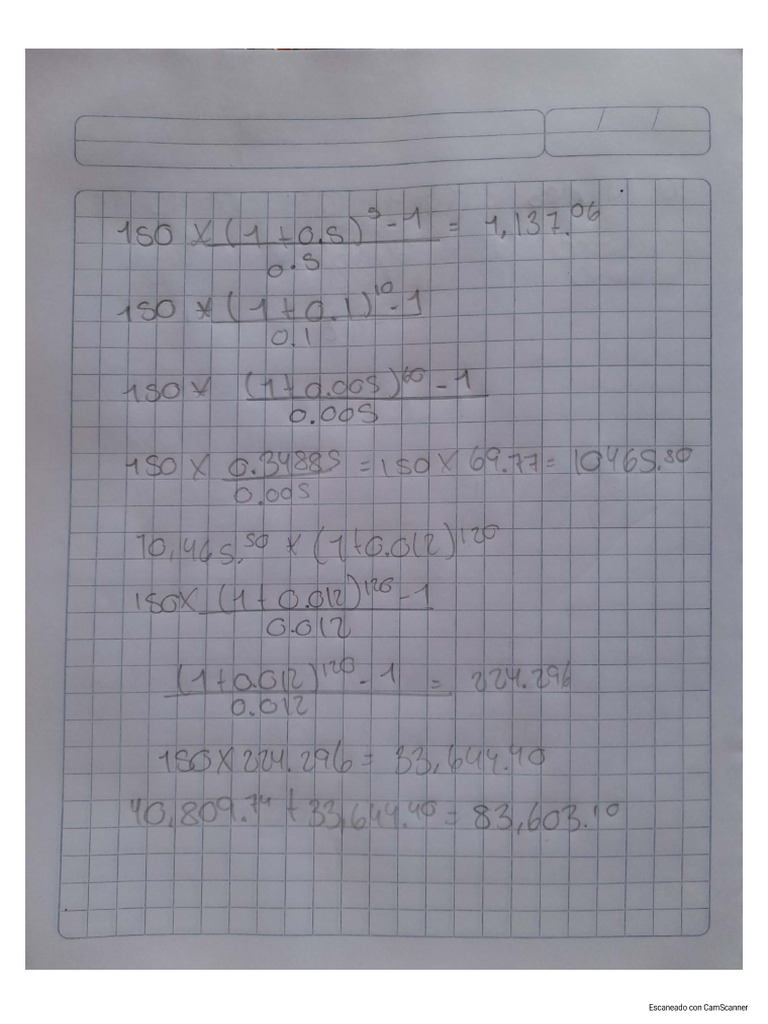 150 × (1+0.5)⁵-1 = 1,137.06
0.5
150 × (1+0.1)¹⁰-1
0.1
150 × (1+0.005)⁶⁰-1
0.005
150 × 0.34885 = 150 × 69.77 = 10465.50
0.005
10,465.50 × (1+0.012)¹²⁰
150× (1+0.012)¹²⁰-1
0.012
(1+0.012)¹²⁰-1 = 224.296
0.012
150×224.296 = 33,644.40
40,809.74 + 33,644.40 = 83,603.10
Escaneado con CamScanner